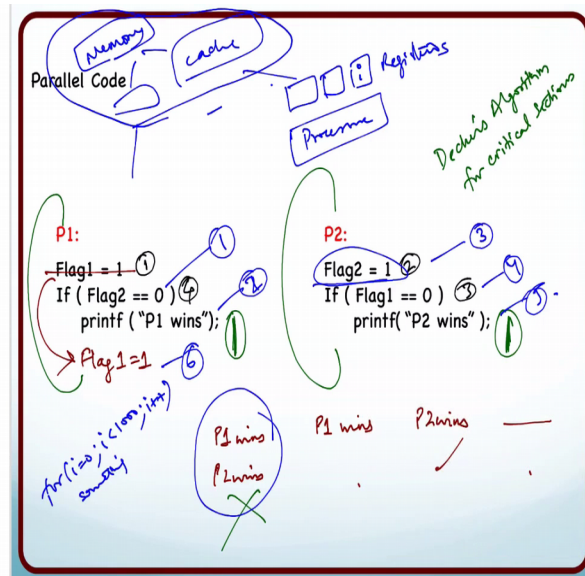 Memory
cache
Parallel Code
i
Registers
Processor
Decker's Algorithm
for critical sections
P1:
Flag1 = 1 ①
If ( Flag2 == 0 ) ④
printf ("P1 wins");
Flag1=1
①
②
⑥
P2:
Flag2 = 1 ②
If ( Flag1 == 0 ) ③
printf( "P2 wins" );
③
④
⑤
for(i=0; i<1000; i++)
something
P1 wins
P2 wins
P1 wins
P2 wins